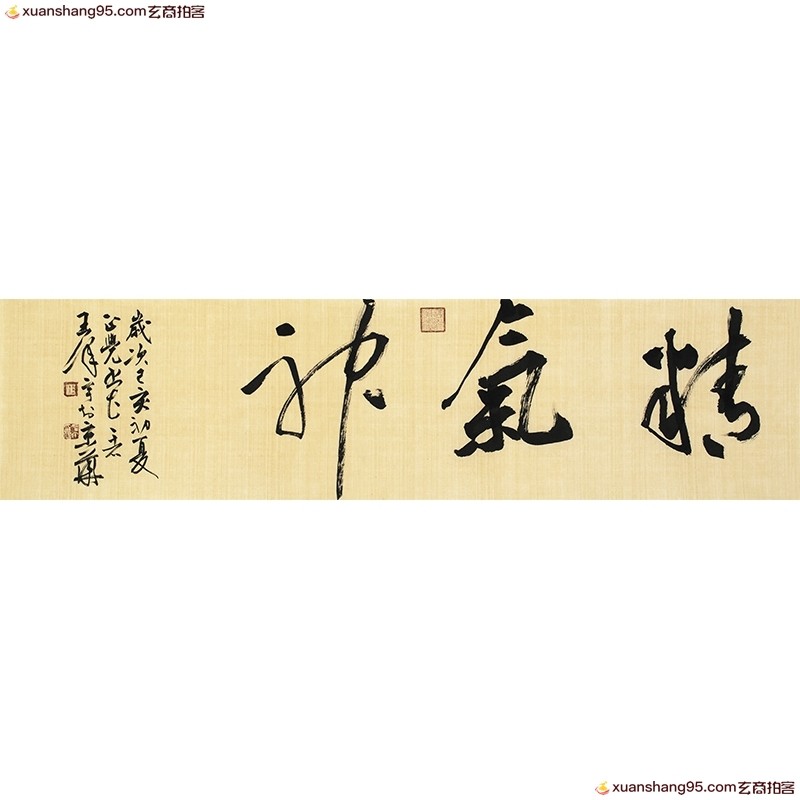 xuanshang95.com玄商拍客
精氣神
歲次己亥初夏
正覺
王
xuanshang95.com玄商拍客